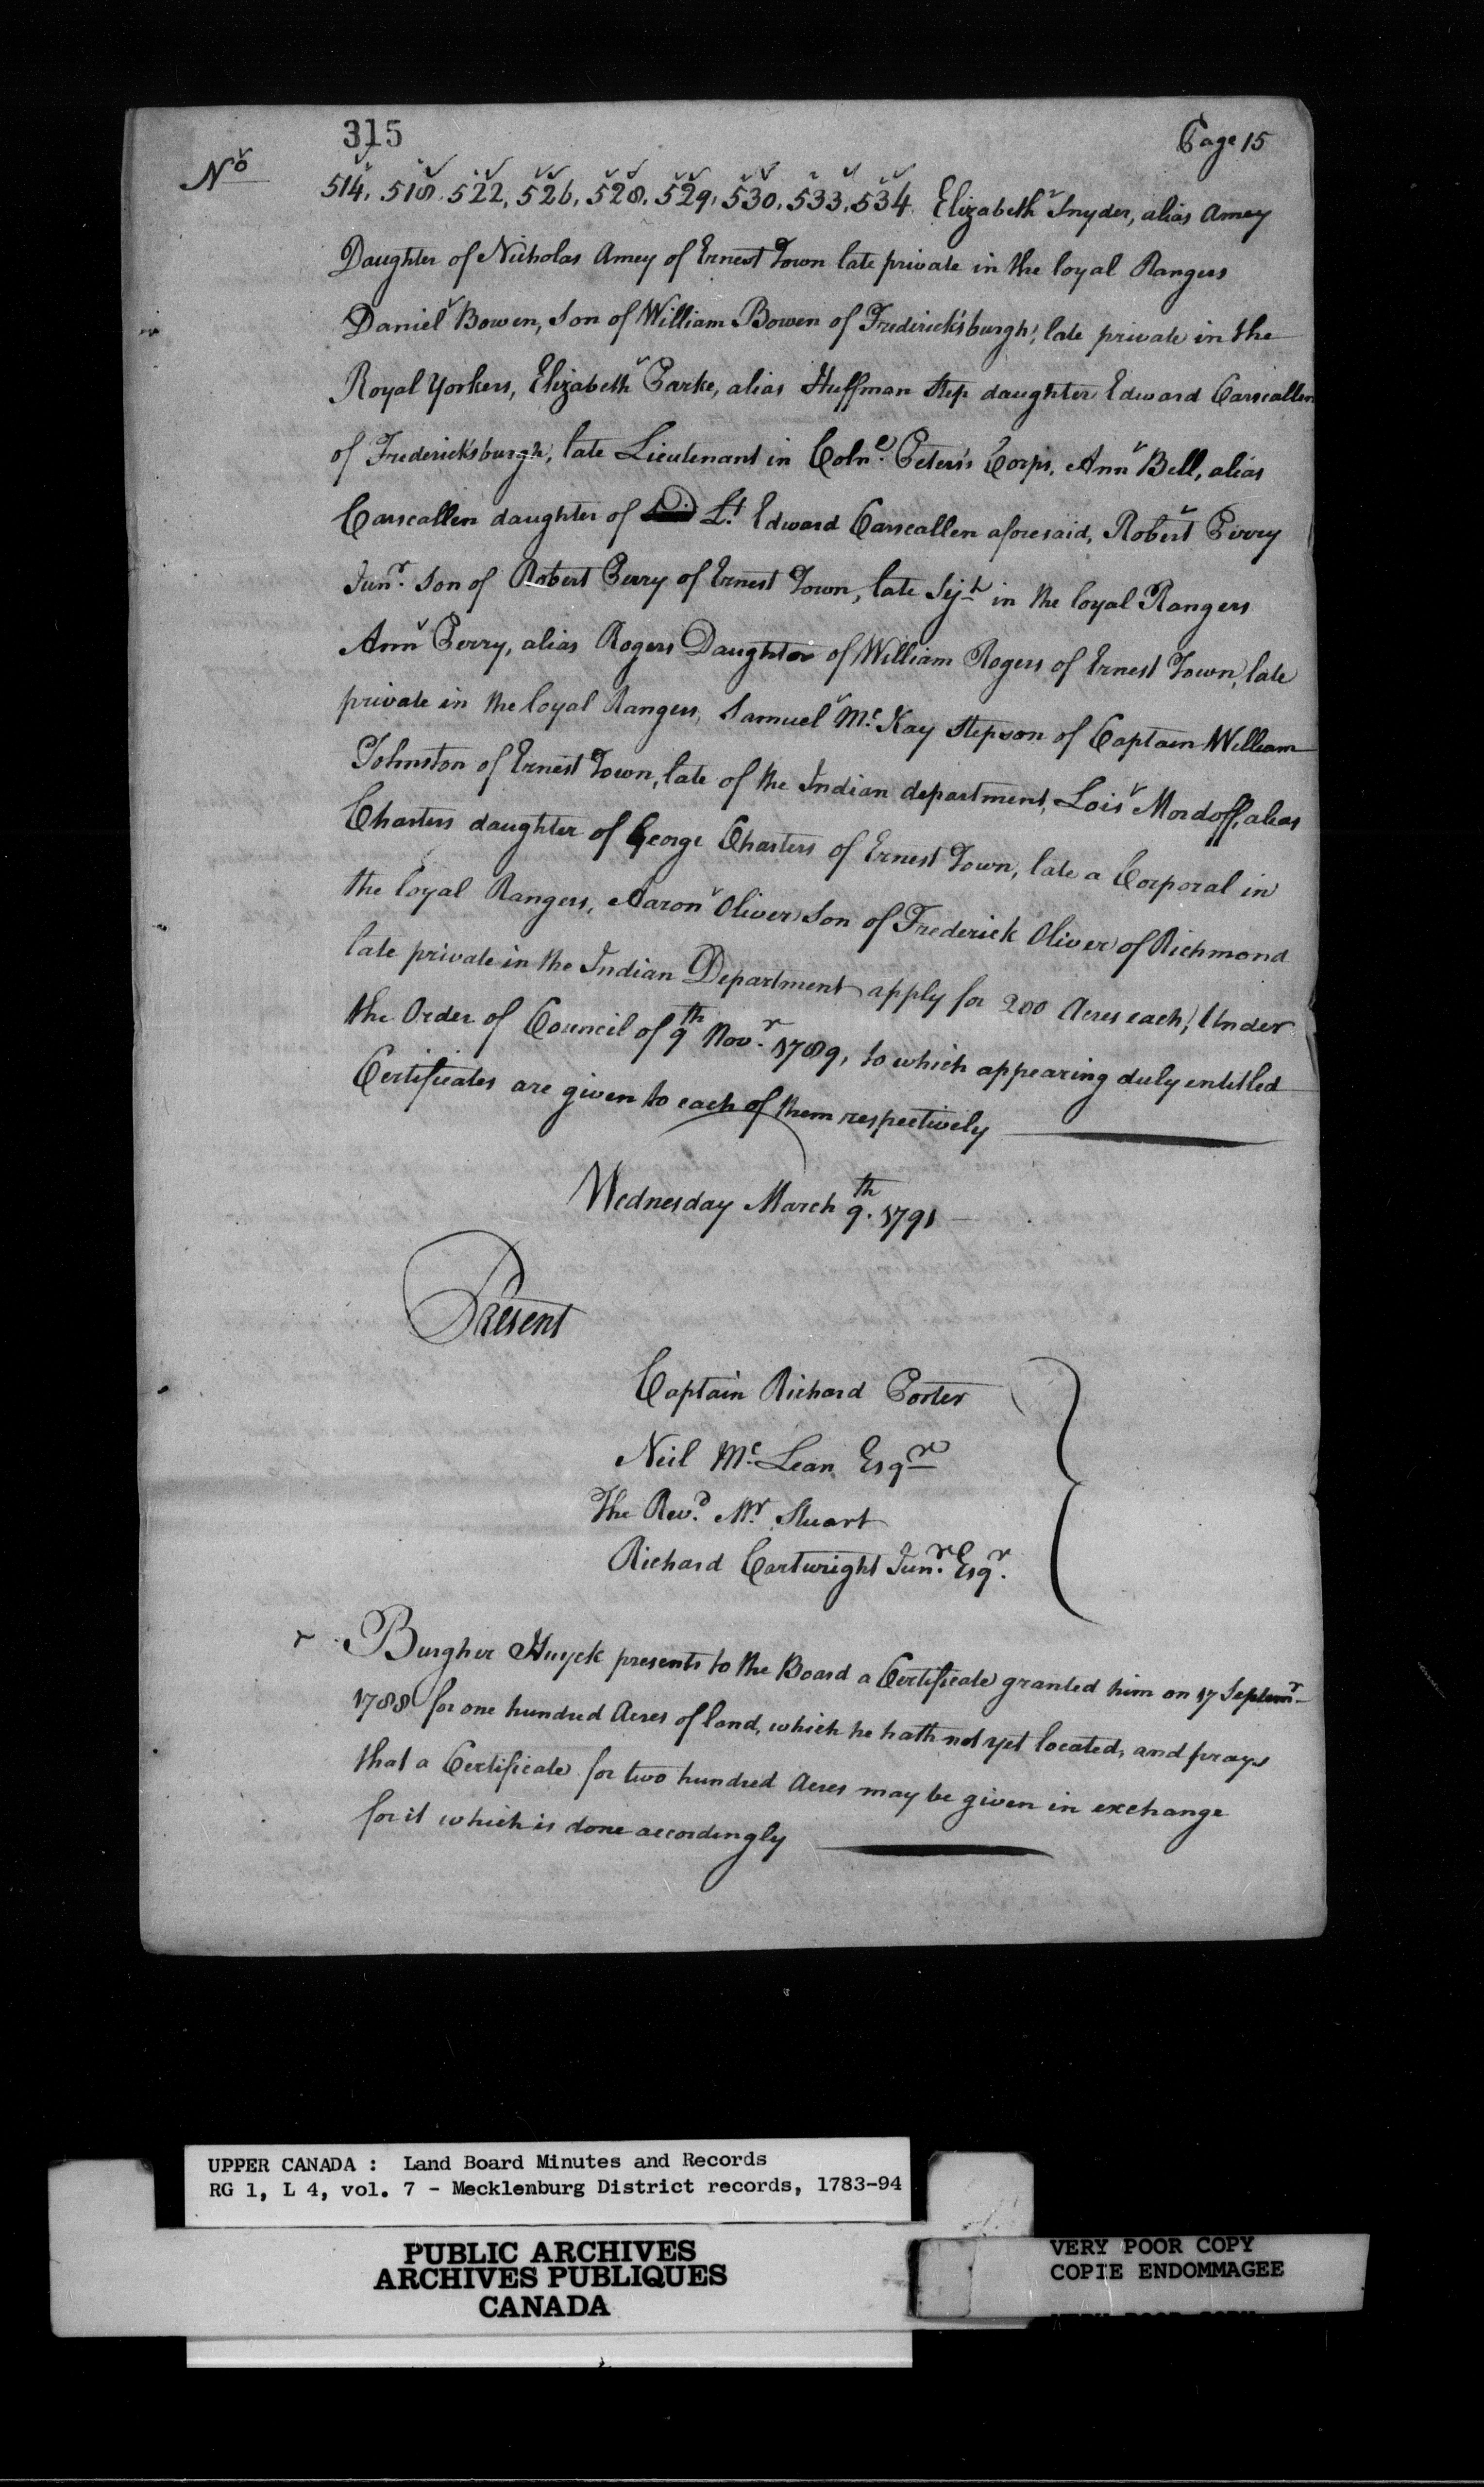 315
Page 15
No
514, 518, 522, 526, 528, 529, 530, 533, 534. Elizabeth Snyder, alias Amey
Daughter of Nicholas Amey of Ernest Town late private in the loyal Rangers
Daniel Bowen, Son of William Bowen of Frederick'sburgh, late private in the
Royal Yorkers, Elizabeth Parke, alias Huffman Step daughter Edward Carscallen
of Frederick'sburgh, late Lieutenant in Colne. Peters's Corps, Ann Bell, alias
Carscallen daughter of Lt. Edward Carscallen aforesaid, Robert Perry
Junr. Son of Robert Perry of Ernest Town, late Sejt in the loyal Rangers
Ann Perry, alias Rogers Daughter of William Rogers of Ernest Town, late
private in the loyal Rangers, Samuel McKay Stepson of Captain William
Johnston of Ernest Town, late of the Indian department, Lois Mordoff, alias
Charters daughter of George Charters of Ernest Town, late a Corporal in
the loyal Rangers, Aaron Oliver Son of Frederick Oliver of Richmond
late private in the Indian Department apply for 200 Acres each, Under
the Order of Council of 9th Novr. 1789, to which appearing duly entitled
Certificates are given to each of them respectively
Wednesday March 9th. 1791
Present
Captain Richard Porter
Neil McLean Esqr
The Revd. Mr. Stuart
Richard Cartwright Junr. Esqr.
Burgher Huyck presents to the Board a Certificate granted him on 17 Septemr
1788 for one hundred Acres of land, which he hath not yet located, and prays
that a Certificate for two hundred Acres may be given in exchange
for it which is done accordingly
UPPER CANADA : Land Board Minutes and Records
RG 1, L 4, vol. 7 - Mecklenburg District records, 1783-94
PUBLIC ARCHIVES
ARCHIVES PUBLIQUES
CANADA
VERY POOR COPY
COPIE ENDOMMAGEE